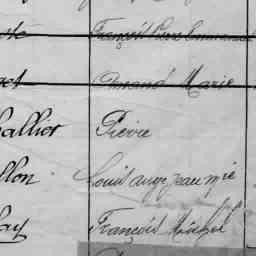 François Pierre Emmanuel
Armand Marie
Halliot Pierre
llon Louis ange jean mie
lay François Michel